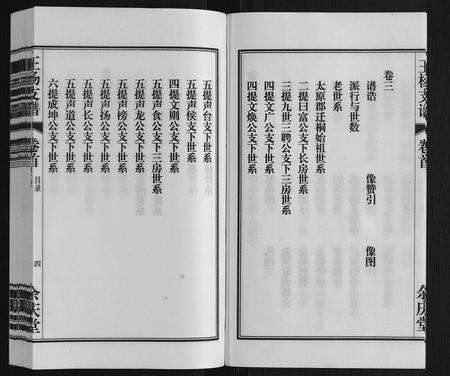 卷三
谱诰 像赞引 像图
派行与世数
老世系
太原郡迁桐始祖世系
二提曰富公支下长房世系
三提九世三聘公支下三房世系
四提文广公支下世系
四提文焕公支下世系
五提声台支下世系
五提声侯支下世系
四提文则公支下世系
五提声食公支下三房世系
五提声龙公支下世系
五提声榜公支下世系
五提声扬公支下世系
五提声长公支下世系
五提声道公支下世系
六提成坤公支下世系
王杨支谱
卷首
目录
四
余庆堂
王杨支谱
卷首
余庆堂